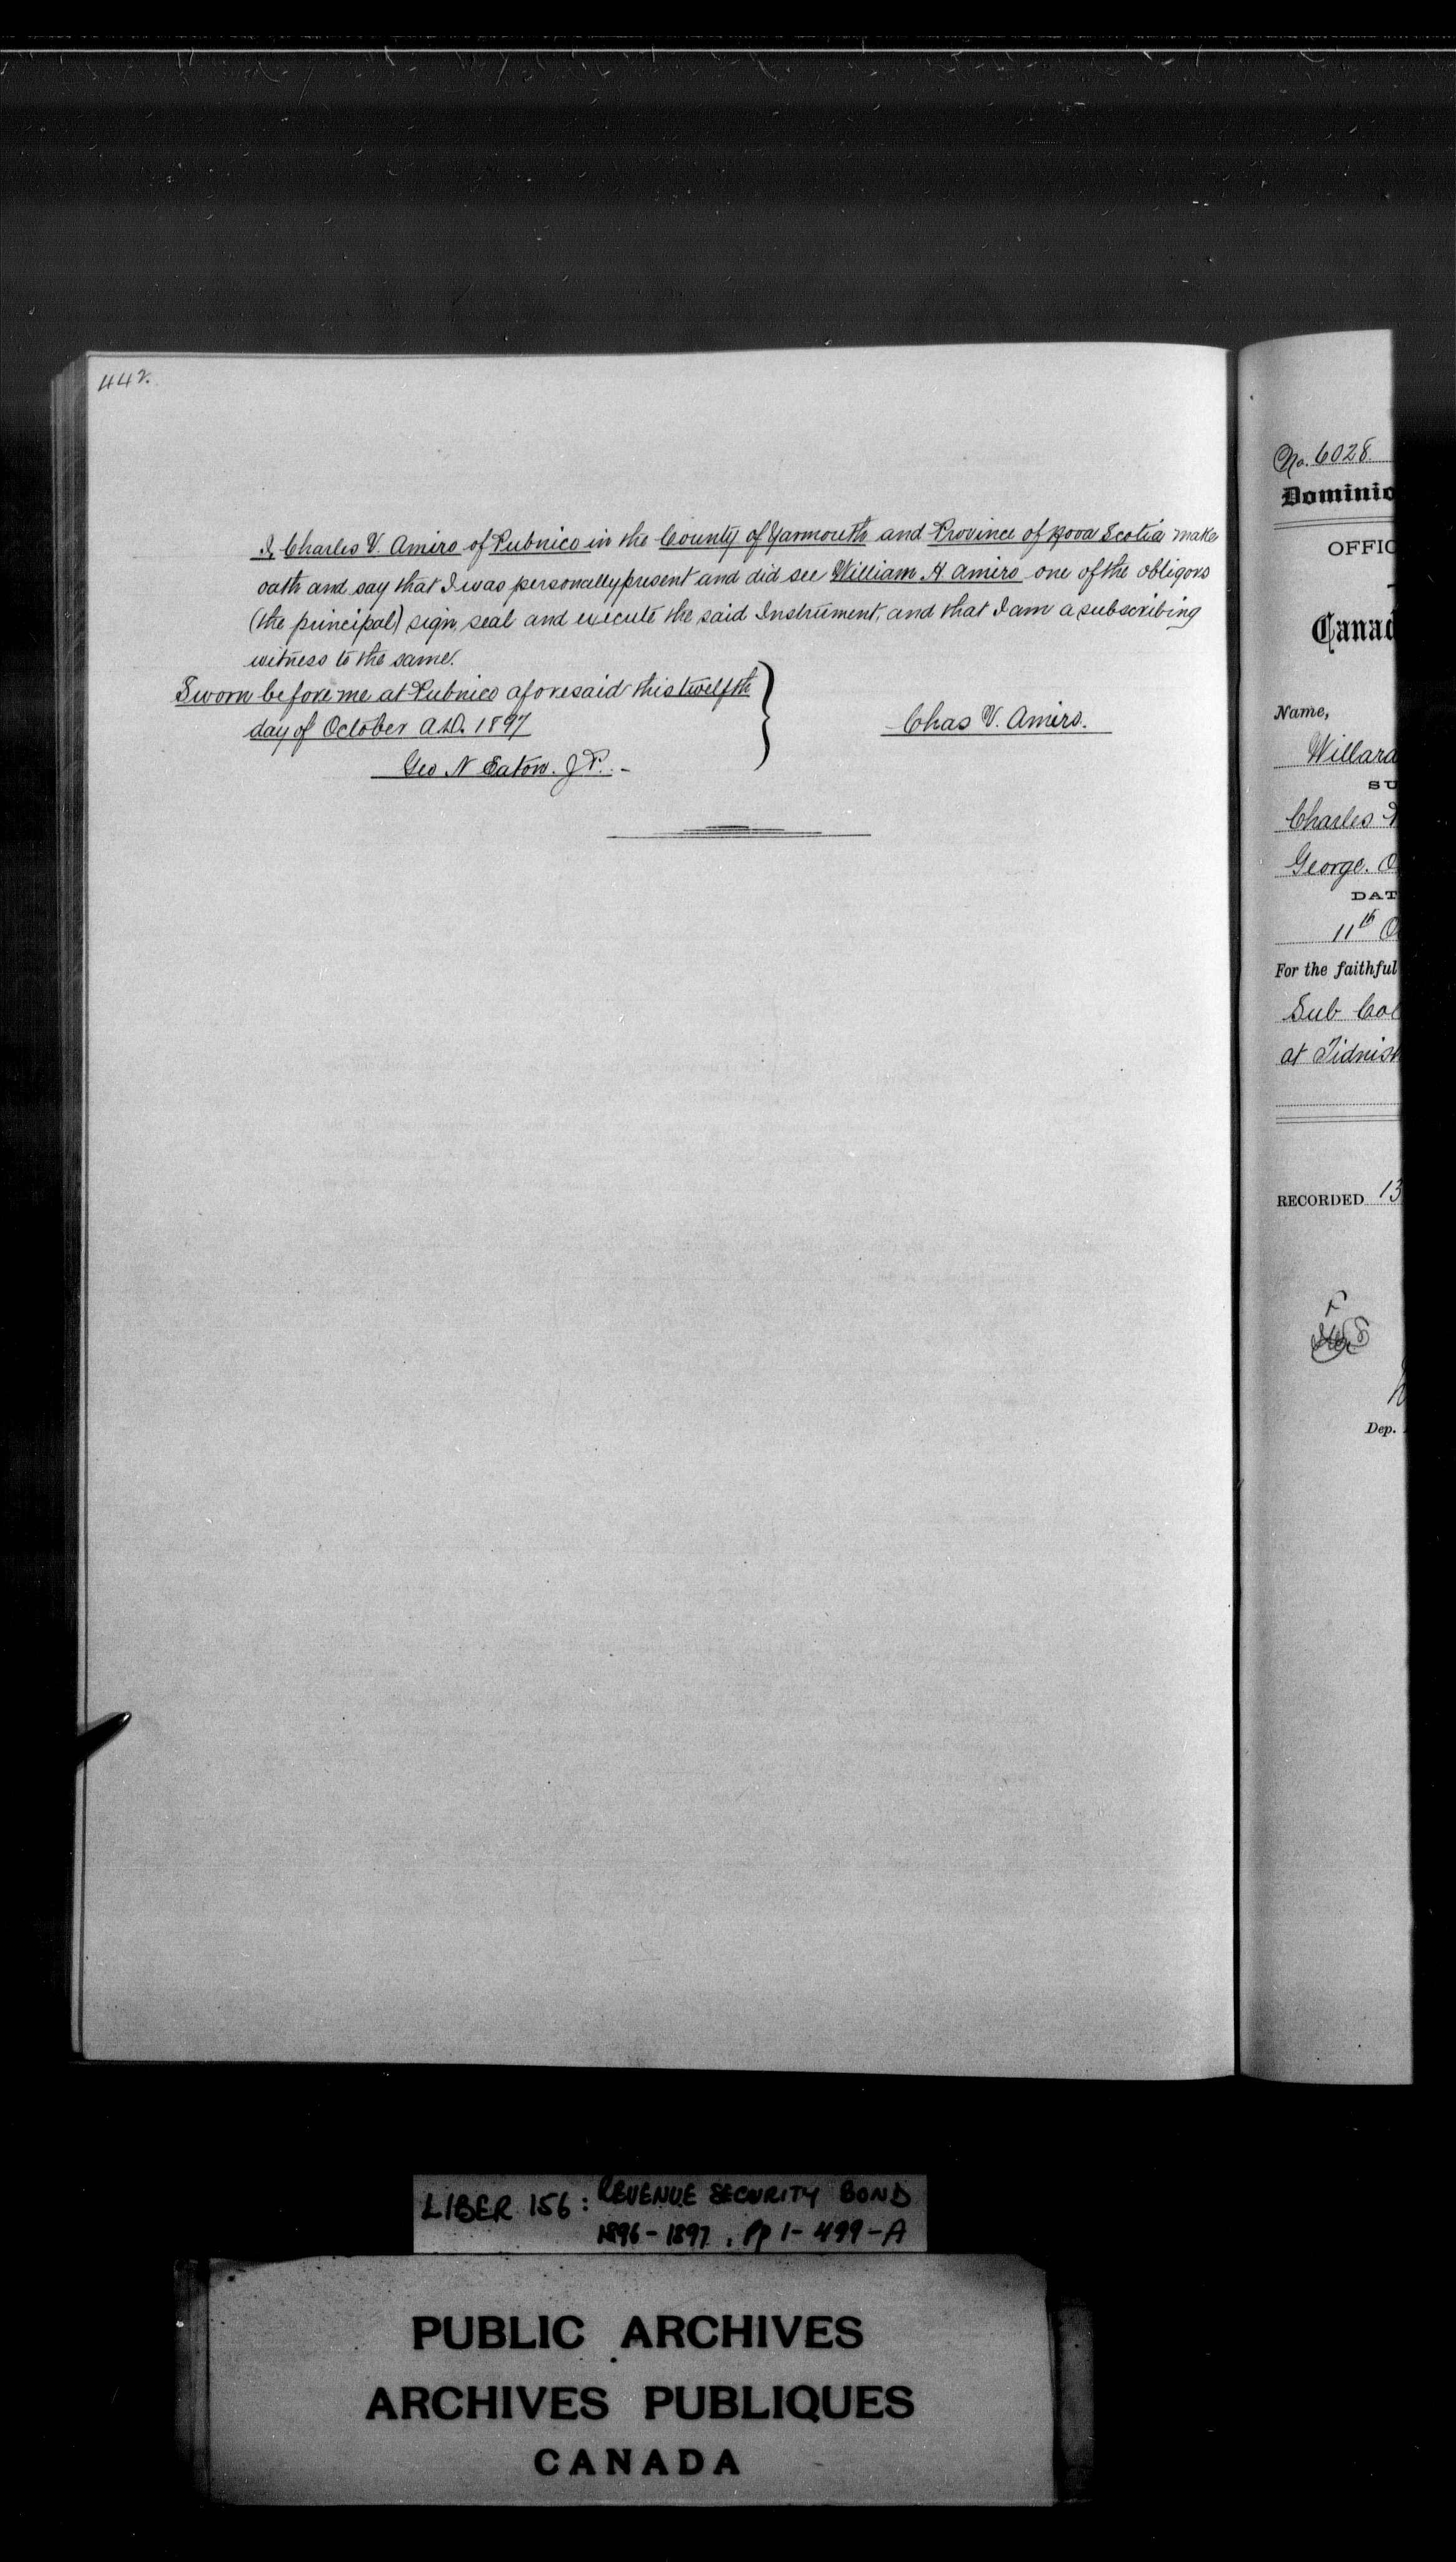 442.
I, Charles V. Amiro of Pubnico in the County of Yarmouth and Province of Nova Scotia make
oath and say that I was personally present and did see William H Amiro one of the obligors
(the principal) sign, seal and execute the said Instrument, and that I am a subscribing
witness to the same.
Sworn before me at Pubnico aforesaid this twelfth
day of October A.D. 1897
Chas V. Amiro.
Geo N Eaton. J.P.
No. 6028
Dominio
OFFIC
Canad
Name,
Willard
SU
Charles
George. O
DAT
11th O
For the faithful
Sub Col
at Tidnish
RECORDED 13
Dep.
LIBER 156: REVENUE SECURITY BOND
1896-1897, Pp 1-499-A
PUBLIC ARCHIVES
ARCHIVES PUBLIQUES
CANADA